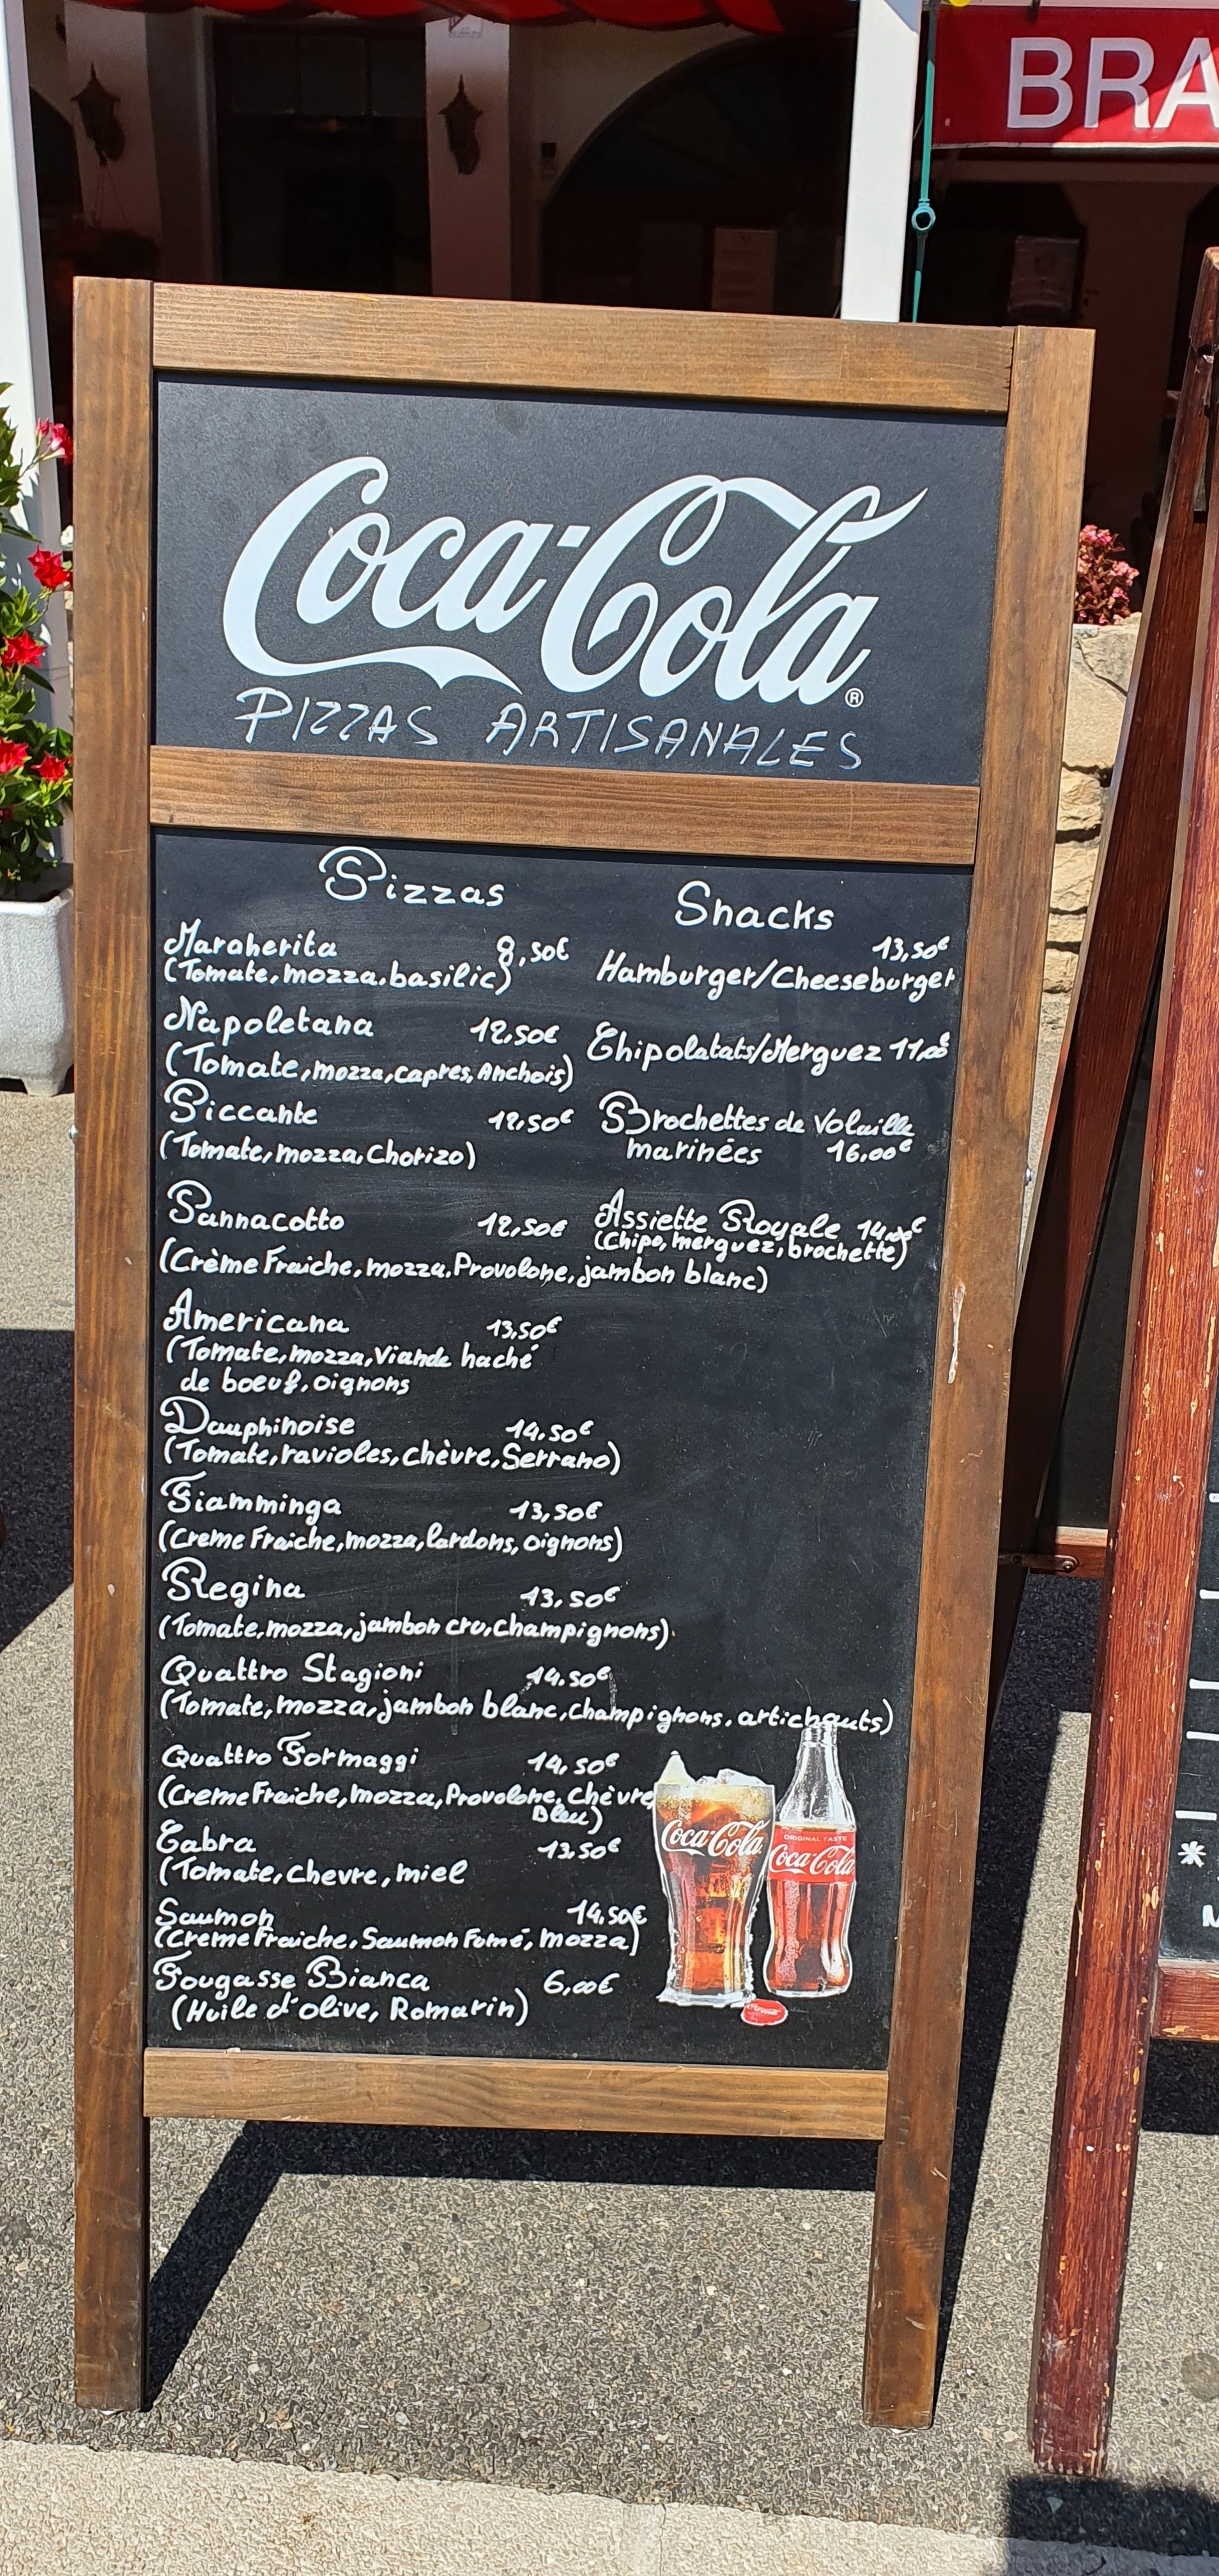 BRA
Coca-Cola®
PIZZAS ARTISANALES
Pizzas
Margherita 9,50€
(Tomate, mozza, basilic)
Napoletana 12,50€
(Tomate, mozza, capres, Anchois)
Piccante 12,50€
(Tomate, mozza, Chorizo)
Pannacotto 12,50€
(Crème Fraiche, mozza, Provolone, jambon blanc)
Americana 13,50€
(Tomate, mozza, Viande haché
de boeuf, oignons
Dauphinoise 14.50€
(Tomate, ravioles, chèvre, Serrano)
Fiamminga 13,50€
(Creme Fraiche, mozza, lardons, oignons)
Regina 13,50€
(Tomate, mozza, jambon cru, champignons)
Quattro Stagioni 14.50€
(Tomate, mozza, jambon blanc, champignons, artichauts)
Quattro Formaggi 14,50€
(Creme Fraiche, mozza, Provolone, chèvre
Bleu)
Cabra 13,50€
(Tomate, chevre, miel
Saumon 14,50€
(Creme Fraiche, Saumon Fumé, mozza)
Fougasse Bianca 6,00€
(Huile d'olive, Romarin)
Snacks
13,50€
Hamburger/Cheeseburger
Chipolatats/Merguez 11,00€
Brochettes de Volaille
marinées 16.00€
Assiette Royale 14.00€
(Chipo, merguez, brochette)
Coca-Cola
ORIGINAL TASTE
Coca-Cola
*